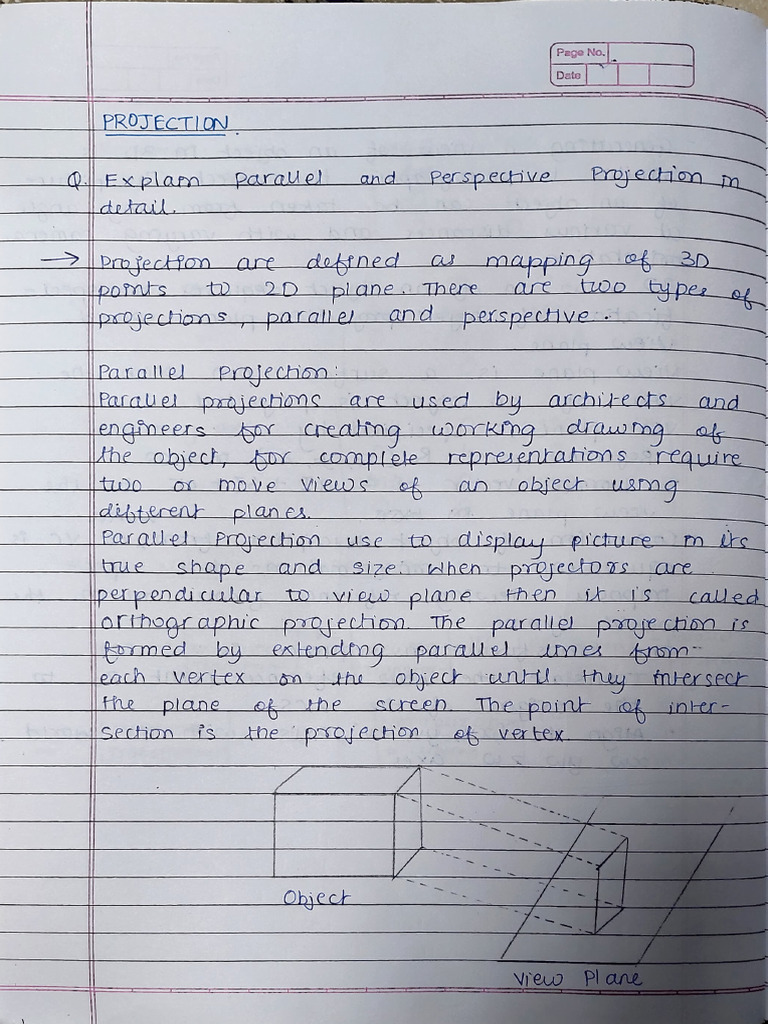 Page No.
Date
PROJECTION.
Q. Explain Parallel and Perspective Projection in
detail.
→ Projection are defined as mapping of 3D
points to 2D plane. There are two types of
projections, parallel and perspective.
Parallel Projection:
Parallel projections are used by architects and
engineers for creating working drawing of
the object, for complete representations require
two or move views of an object using
different planes.
Parallel Projection use to display picture in its
true shape and size. When projectors are
perpendicular to view plane then it is called
orthographic projection. The parallel projection is
formed by extending parallel lines from
each vertex on the object until they intersect
the plane of the screen. The point of inter-
section is the projection of vertex.
Object
View Plane